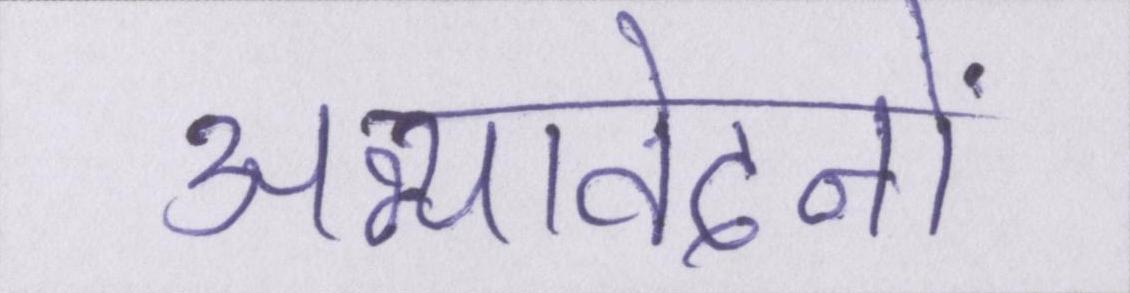 अभ्यावेदनों